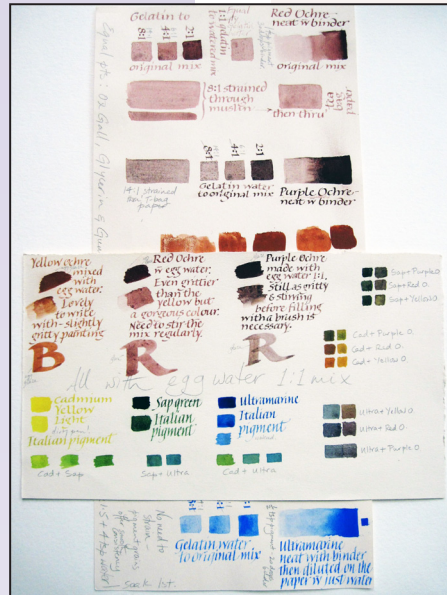 Gelatin to
8:1
4:1
2:1
original mix
1:1 gelatin
to watered mix
Red Ochre
neat w binder
original mix
8:1 strained
through
muslin
extra
bag
then thru'
14:1 strained
thru' T-bag
paper
8:1
4:1
2:1
Gelatin water
to original mix
Purple Ochre
neat w binder
Equal pts: Ox Gall, Glycerin & Gum
Yellow Ochre
mixed
with
egg water.
Lovely
to write
with - slightly
gritty painting
B
Red Ochre
w egg water.
Even grittier
than the
yellow but
a gorgeous colour.
Need to stir the
mix regularly.
R
Purple Ochre
made with
egg water 1:1.
Still as gritty
& stirring
before filling
with a brush is
necessary.
R
Sap + Purple O
Sap + Red O.
Sap + Yellow O
Cad + Purple O.
Cad + Red O.
Cad + Yellow O.
All with egg water 1:1 mix
Cadmium
Yellow
Light
Italian pigment
Sap green
Italian
pigment
Ultramarine
Italian
pigment
Ultra + Yellow O
Ultra + Red O.
Ultra + Purple O.
Cad + Sap
Sap + Ultra
Cad + Ultra
No need to
strain -
pigment grains
offer good
consistency
1·5 + 4 tap water
Soak 1st.
8:1
4:1
2:1
Gelatin water
to original mix
Ultramarine
neat with binder
then diluted on the
paper w just water